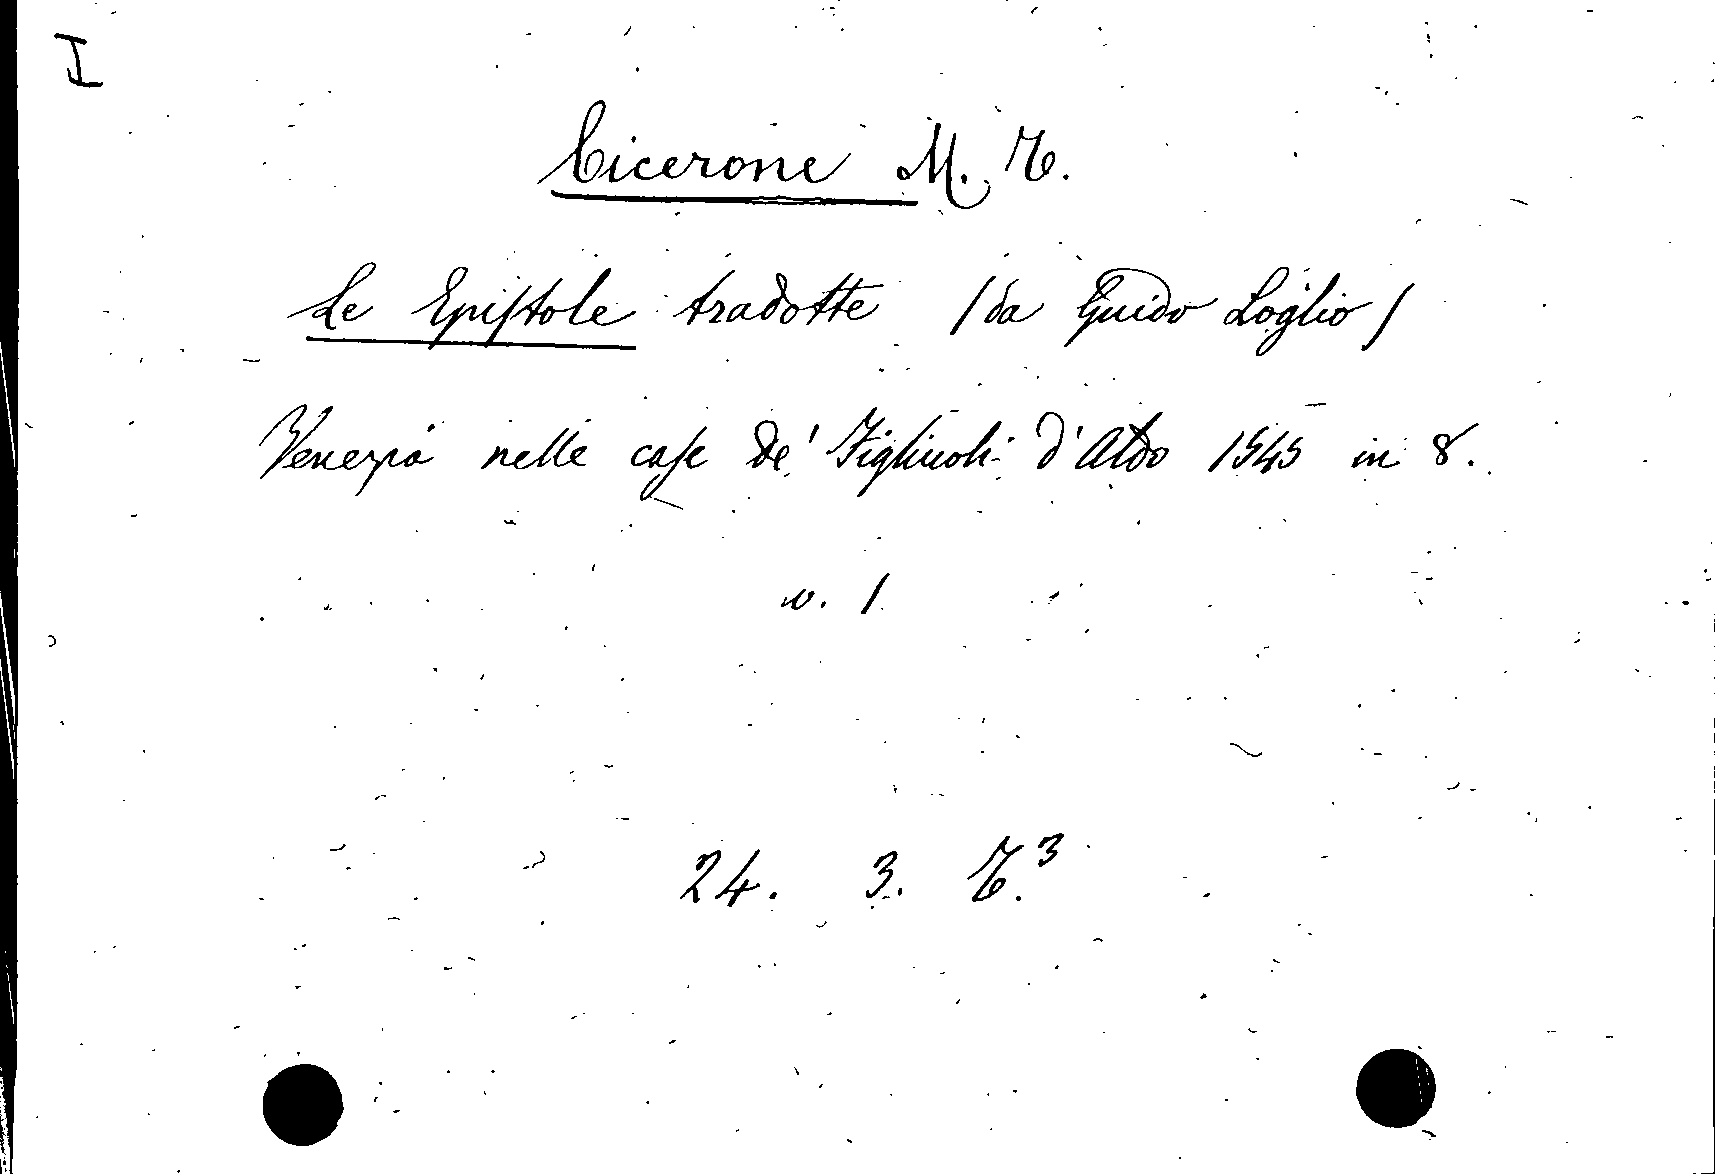 I
Cicerone M. T.
Le Epistole tradotte (da Guido Loglio)
Venezia nelle case de' Figliuoli d'Aldo 1545 in 8.
v. 1
24. 3. T.³